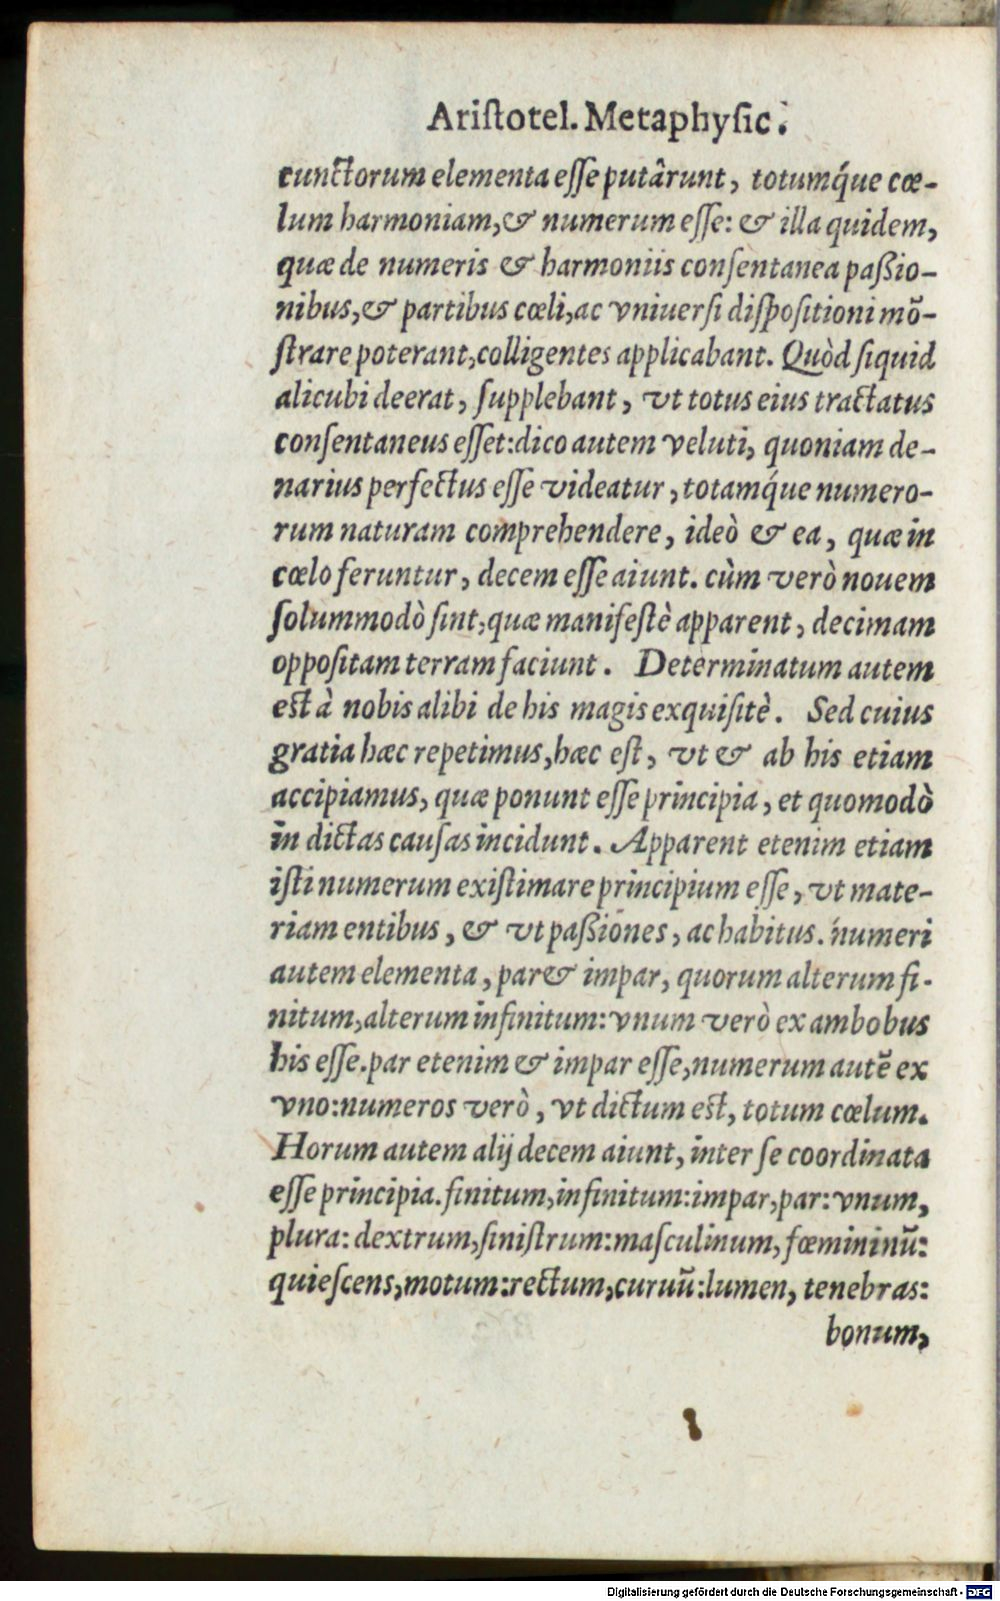 Ariſtotel. Metaphyſic.
cunctorum elementa eſſe putârunt, totumq́ue cœ-
lum harmoniam,& numerum eſſe: & illa quidem,
quæ de numeris & harmoniis conſentanea paßio-
nibus,& partibus cœli,ac vniuerſi diſpoſitioni mõ-
ſtrare poterant,colligentes applicabant. Quòd ſiquid
alicubi deerat, ſupplebant, vt totus eius tractatus
conſentaneus eſſet:dico autem veluti, quoniam de-
narius perfectus eſſe videatur, totamq́ue numero-
rum naturam comprehendere, ideò & ea, quæ in
cœlo feruntur, decem eſſe aiunt. cùm verò nouem
ſolummodò ſint,quæ manifeſtè apparent, decimam
oppoſitam terram faciunt. Determinatum autem
est à nobis alibi de his magis exquiſitè. Sed cuius
gratia hæc repetimus,hæc eſt, vt & ab his etiam
accipiamus, quæ ponunt eſſe principia, et quomodò
in dictas cauſas incidunt. Apparent etenim etiam
iſti numerum exiſtimare principium eſſe, vt mate-
riam entibus, & vt paßiones, ac habitus. numeri
autem elementa, par & impar, quorum alterum fi-
nitum,alterum infinitum: vnum verò ex ambobus
his eſſe.par etenim & impar eſſe,numerum autẽ ex
vno:numeros verò, vt dictum est, totum cœlum.
Horum autem alij decem aiunt, inter ſe coordinata
eſſe principia. finitum,infinitum:impar,par: vnum,
plura: dextrum,ſiniſtrum:maſculinum, fœmininũ:
quieſcens,motum:rectum,curuũ:lumen, tenebras:
bonum,
Digitalisierung gefördert durch die Deutsche Forschungsgemeinschaft - DFG